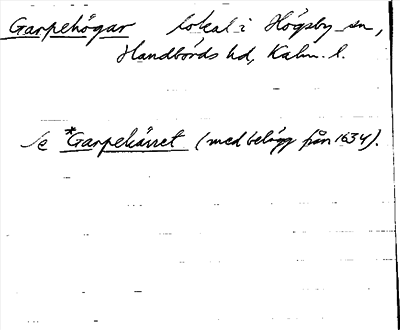 Garpehögar lokal i Högsby sn,
Handbörds hd, Kalm. l.
se *Garpekärret (med belägg från 1634).